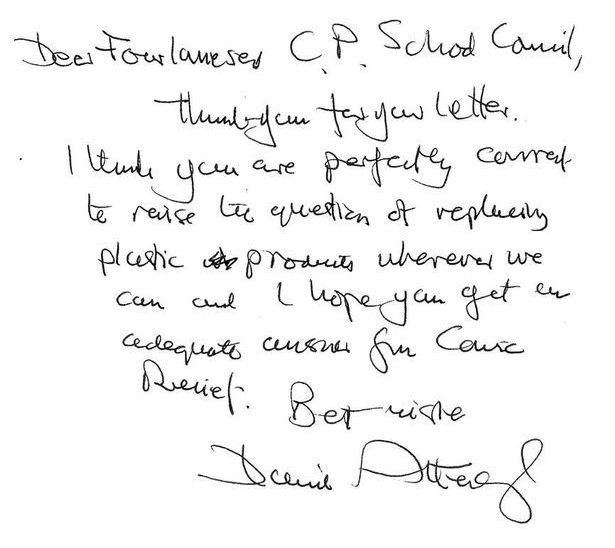 Dear Fourlanesend C.P. School Council,
Thank you for your letter.
I think you are perfectly correct
to raise the question of replacing
plastic products wherever we
can and I hope you get an
adequate answer from Comic
Relief. Best wishes
David Attenborough